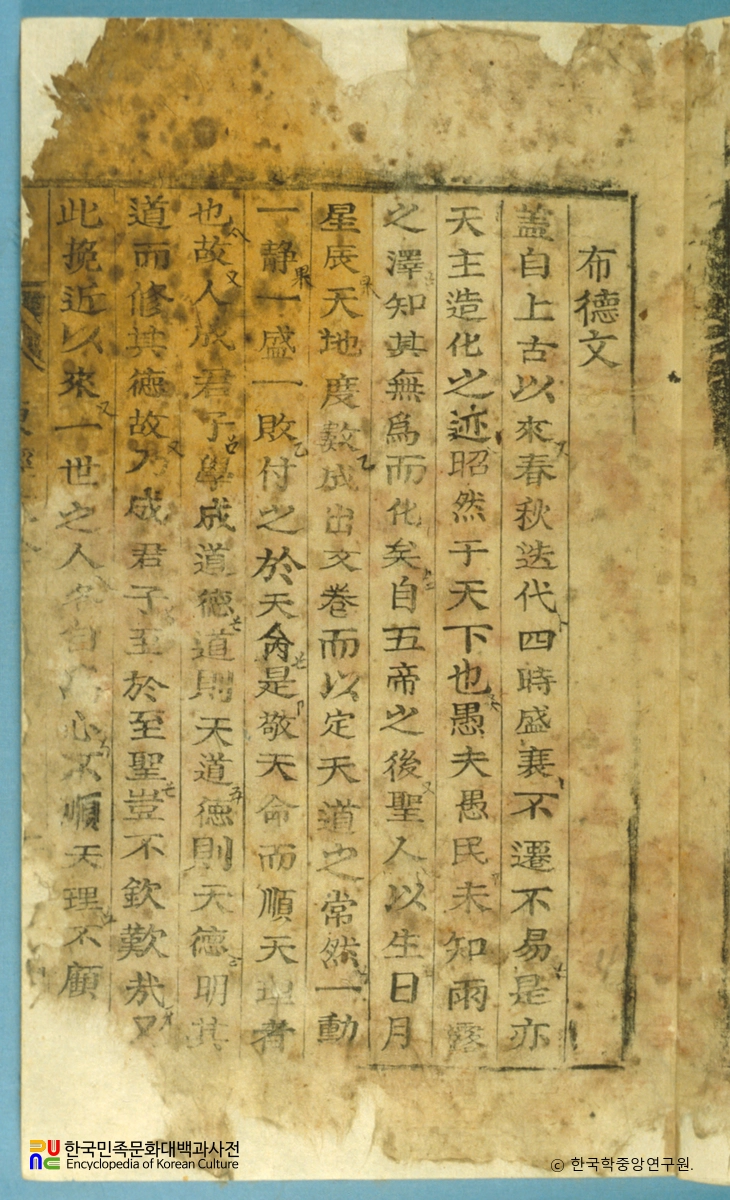 布德文
盖自上古以來春秋迭代四時盛衰不遷不易是亦
天主造化之迹昭然于天下也愚夫愚民未知雨露
之澤知其無爲而化矣自五帝之後聖人以生日月
星辰天地度數成出文卷而以定天道之常然一動
一静一盛一敗付之於天命是敬天命而順天理者
也故人成君子學成道德道則天道德則天德明其
道而修其德故乃成君子至於至聖豈不欽歎哉又
此挽近以來一世之人各自爲心不順天理不顧
한국민족문화대백과사전
Encyclopedia of Korean Culture
ⓒ 한국학중앙연구원.